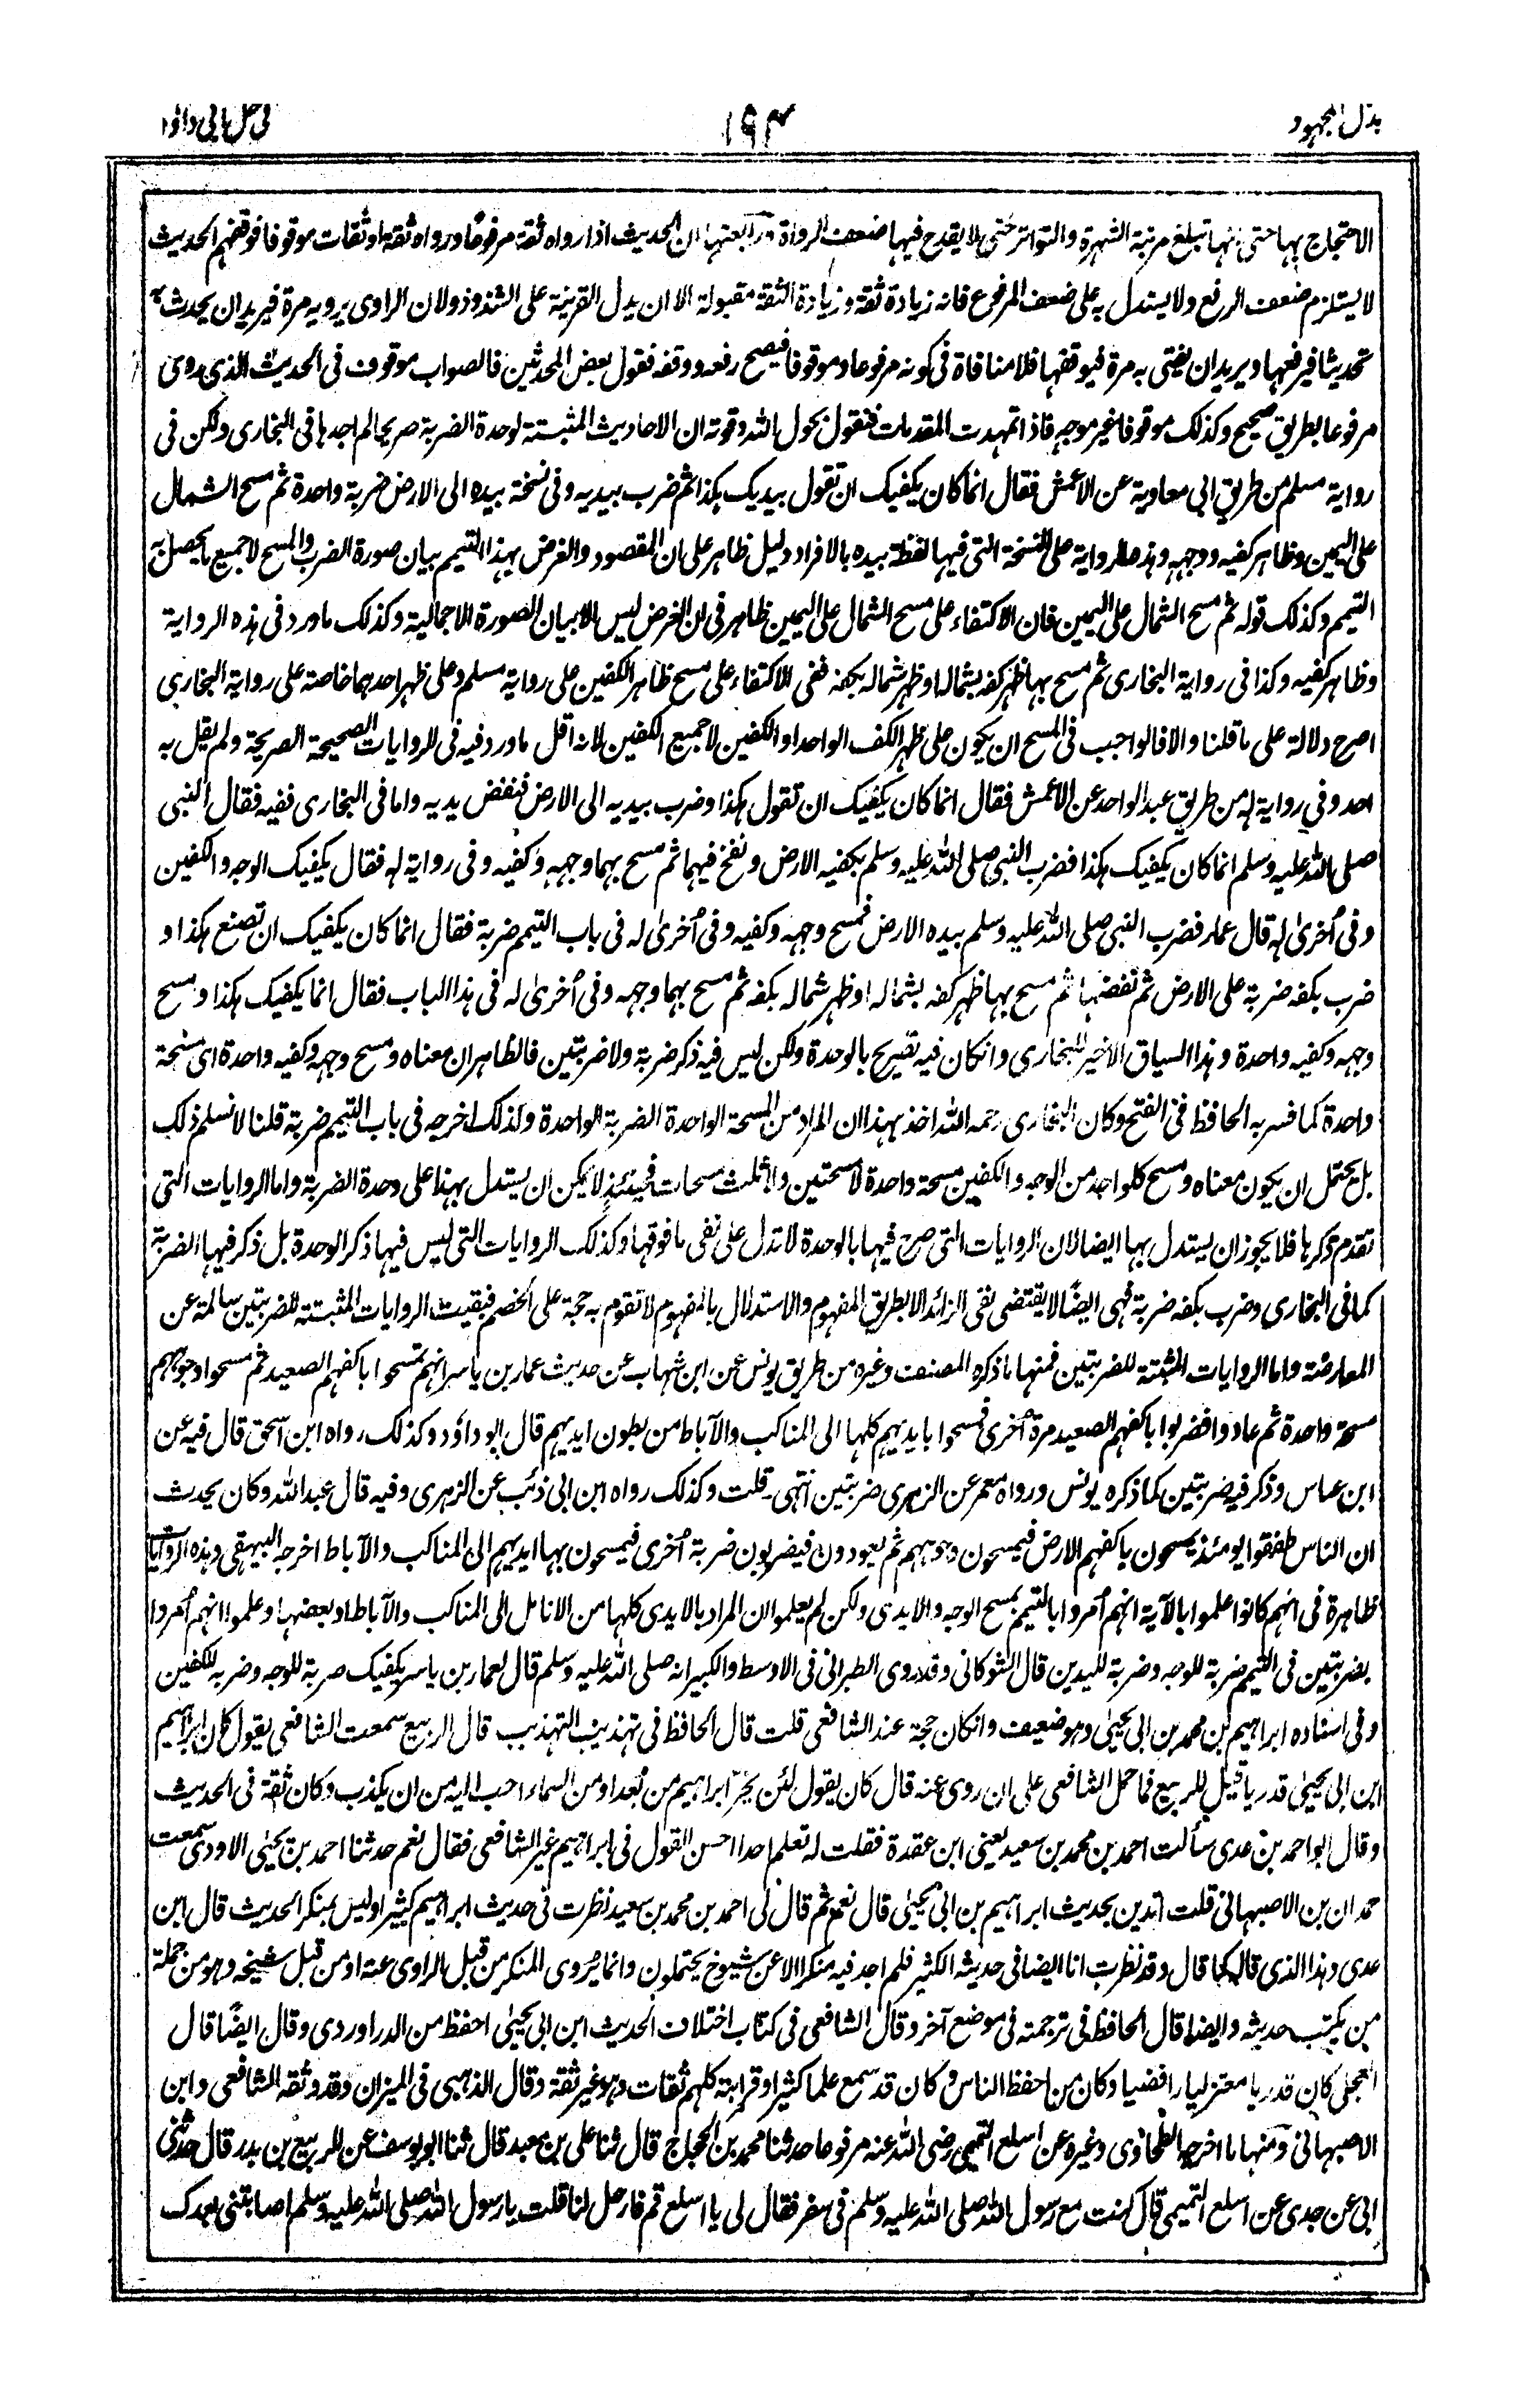 بذل المجهود
١٩٣
فى حل ابى داؤد
الاحتجاج بها حتى انها تبلغ مرتبة الشهرة والتواتر حتى لا يقدح فيها ضعف الرواة ورابعتها ان الحديث اذا رواه ثقة مرفوعا ورواه ثقة او ثقات موقوفا فوقفهم الحديث
لا يستلزم ضعف الرفع ولا يستدل به على ضعف المرفوع فانه زيادة ثقة وزيادة الثقة مقبولة الا ان يدل القرينة على الشذوذ ولان الراوى يرويه مرة فيريد ان يحدث به
تحديثا فيرفعها ويريد ان يفتى به مرة فيوقفها فلا منافاة فى كونه مرفوعا وموقوفا فيصح رفعه ووقفه فقول بعض المحدثين فالصواب موقوف فى الحديث الذى روى
مرفوعا بطريق صحيح وكذلك موقوفا غير موجه فاذا تمهدت المقدمات فنقول بحول الله وقوته ان الاحاديث المثبتة لوحدة الضربة صريحا لم اجدها فى البخارى ولكن فى
رواية مسلم من طريق ابى معاوية عن الاعمش فقال انما كان يكفيك ان تقول بيديك هكذا ثم ضرب بيديه وفى نسخة بيده الى الارض ضربة واحدة ثم مسح الشمال
على اليمين وظاهر كفيه ووجهه وهذه الرواية على النسخة التى فيها لفظة بيده بالافراد دليل ظاهر على ان المقصود والغرض بهذا التيمم بيان صورة الضرب والمسح لا جميع ما يحصل به
التيمم وكذلك قوله ثم مسح الشمال على اليمين فان الاكتفاء على مسح الشمال على اليمين ظاهر فى ان الغرض ليس الا بيان الصورة الاجمالية وكذلك ما ورد فى هذه الرواية
وظاهر كفيه وكذا فى رواية البخارى ثم مسح بها ظهر كفه بشماله او ظهر شماله بكفه ففى الاكتفاء على مسح ظاهر الكفين على رواية مسلم وعلى ظهر احدهما خاصة على رواية البخارى
اصرح دلالة على ما قلنا والا فالواجب فى المسح ان يكون على ظهر الكف الواحد او الكفين لا جميع الكفين لانه اقل ما ورد فيه فى الروايات الصحيحة الصريحة ولم يقل به
احد وفى رواية له من طريق عبد الواحد عن الاعمش فقال انما كان يكفيك ان تقول هكذا وضرب بيديه الى الارض فنفض يديه واما فى البخارى ففيه فقال النبى
صلى الله عليه وسلم انما كان يكفيك هكذا فضرب النبى صلى الله عليه وسلم بكفيه الارض ونفخ فيهما ثم مسح بهما وجهه وكفيه وفى رواية له فقال يكفيك الوجه والكفين
وفى أخرىٰ له قال عمار فضرب النبى صلى الله عليه وسلم بيده الارض فمسح وجهه وكفيه وفى أخرىٰ له فى باب التيمم ضربة فقال انما كان يكفيك ان تصنع هكذا و
ضرب بكفه ضربة على الارض ثم نفضها ثم مسح بها ظهر كفه بشماله او ظهر شماله بكفه ثم مسح بهما وجهه وفى أخرىٰ له فى هذا الباب فقال انما يكفيك هكذا ومسح
وجهه وكفيه واحدة وهذا السياق الاخير للبخارى وانكان فيه تصريح بالوحدة ولكن ليس فيه ذكر ضربة ولا ضربتين فالظاهر ان معناه ومسح وجهه وكفيه واحدة اى مسحة
واحدة كما فسر به الحافظ فى الفتح وكان البخارى رحمه الله اخذ بهذا ان المراد من المسحة الواحدة الضربة الواحدة ولذلك اخرجه فى باب التيمم ضربة قلنا لا نسلم ذلك
بل يحتمل ان يكون معناه ومسح كل واحد من الوجه والكفين مسحة واحدة لا مسحتين ولا ثلث مسحات فحينئذ لا يمكن ان يستدل بهذا على وحدة الضربة واما الروايات التى
تقدم ذكرها فلا يجوز ان يستدل بها ايضا لان الروايات التى صرح فيها بالوحدة لا تدل على نفى ما فوقها وكذلك الروايات التى ليس فيها ذكر الوحدة بل ذكر فيها الضربة
كما فى البخارى وضرب بكفه ضربة فهى ايضًا لا يقتضى نفى الزائد الا بطريق المفهوم والاستدلال بالمفهوم لا تقوم به حجة على الخصم فبقيت الروايات المثبتة للضربتين سالمة عن
المعارضة واما الروايات المثبتة للضربتين فمنها ما ذكره المصنف وغيره من طريق يونس عن ابن شهاب عن حديث عمار بن ياسر انهم تمسحوا باكفهم الصعيد ثم مسحوا وجوههم
مسحة واحدة ثم عادوا فضربوا باكفهم الصعيد مرة أخرى فمسحوا بايديهم كلها الى المناكب والآباط من بطون ايديهم قال ابو داؤد وكذلك رواه ابن اسحق قال فيه عن
ابن عباس وذكر فيه ضربتين كما ذكره يونس ورواه معمر عن الزهرى ضربتين انتهى۔ قلت وكذلك رواه ابن ابى ذئب عن الزهرى وفيه قال عبد الله وكان يحدث
ان الناس طفقوا يومئذ يمسحون باكفهم الارض فيمسحون وجوههم ثم يعودون فيضربون ضربة أخرى فيمسحون بها ايديهم الى المناكب والآباط اخرجه البيهقى وهذه الروايات
ظاهرة فى انهم كانوا علموا بالآية انهم أمروا بالتيمم بمسح الوجه والايدى ولكن لم يعلموا ان المراد بالايدى كلها من الانامل الى المناكب والآباط او بعضها وعلموا انهم أمروا
بضربتين فى التيمم ضربة للوجه وضربة لليدين قال الشوكانى وقد روى الطبرانى فى الاوسط والكبير انه صلى الله عليه وسلم قال لعمار بن ياسر يكفيك ضربة للوجه وضربة للكفين
وفى اسناده ابراهيم بن محمد بن ابى يحيىٰ وهو ضعيف وانكان حجة عند الشافعى قلت قال الحافظ فى تهذيب التهذيب قال الربيع سمعت الشافعى يقول كان ابراهيم
ابن ابى يحيىٰ قدريا قيل للربيع فما حمل الشافعى على ان روى عنه قال كان يقول لئن يخرّ ابراهيم من بُعد او من السماء احب اليه من ان يكذب وكان ثقة فى الحديث
وقال ابو احمد بن عدى سألت احمد بن محمد بن سعيد يعنى ابن عقدة فقلت له تعلم احدا احسن القول فى ابراهيم غير الشافعى فقال نعم حدثنا احمد بن يحيىٰ الاودى سمعت
حمدان بن الاصبهانى قلت اتدين بحديث ابراهيم بن ابى يحيىٰ قال نعم ثم قال لى احمد بن محمد بن سعيد نظرت فى حديث ابراهيم كثيرا وليس بمنكر الحديث قال ابن
عدى وهذا الذى قاله كما قال وقد نظرت انا ايضا فى حديثه الكثير فلم اجد فيه منكرا الا عن شيوخ يحتملون وانما يروى المنكر من قبل الراوى عنه او من قبل شيخه وهو من جملة
من يكتب حديثه وايضا قال الحافظ فى ترجمته فى موضع آخر وقال الشافعى فى كتاب اختلاف الحديث ابن ابى يحيىٰ احفظ من الدراوردى وقال ايضًا قال
العجلى كان قدريا معتزليا رافضيا وكان من احفظ الناس وكان قد سمع علما كثيرا وقرابته كلهم ثقات وهو غير ثقة وقال الذهبى فى الميزان وقد وثقه الشافعى وابن
الاصبهانى ومنها ما اخرجه الطحاوى وغيره عن اسلع التميمى رضى الله عنه مرفوعا حدثنا محمد بن الحجاج قال ثنا على بن معبد قال ثنا ابو يوسف عن الربيع بن بدر قال حدثنى
ابى عن جدى عن اسلع التميمى قال كنت مع رسول الله صلى الله عليه وسلم فى سفر فقال لى يا اسلع قم فارحل لنا قلت يا رسول الله صلى الله عليه وسلم اصابتنى بعدك